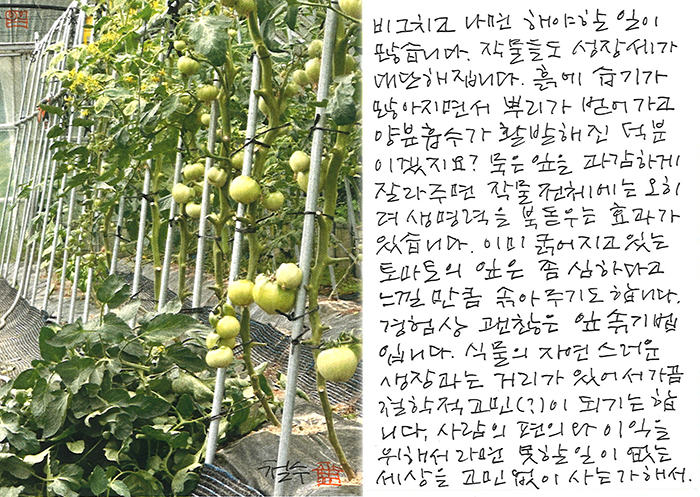 비그치고 나면 해야할 일이
많습니다. 작물들도 성장세가
대단해집니다. 흙에 습기가
많아지면서 뿌리가 뻗어가고
양분흡수가 활발해진 덕분
이겠지요? 묵은 잎을 과감하게
잘라주면 작물전체에는 오히
려 생명력을 북돋우는 효과가
있습니다. 이미 굵어지고 있는
토마토의 잎은 좀 심하다고
느낄 만큼 솎아주기도 합니다.
경험상 괜찮은 잎 솎기법
입니다. 식물의 자연스러운
생장과는 거리가 있어서 가끔
철학적고민(?)이 되기는 합
니다. 사람의 편의와 이익을
위해서라면 못할 일이 없는
세상을 고민없이 사는가 해서.
철수